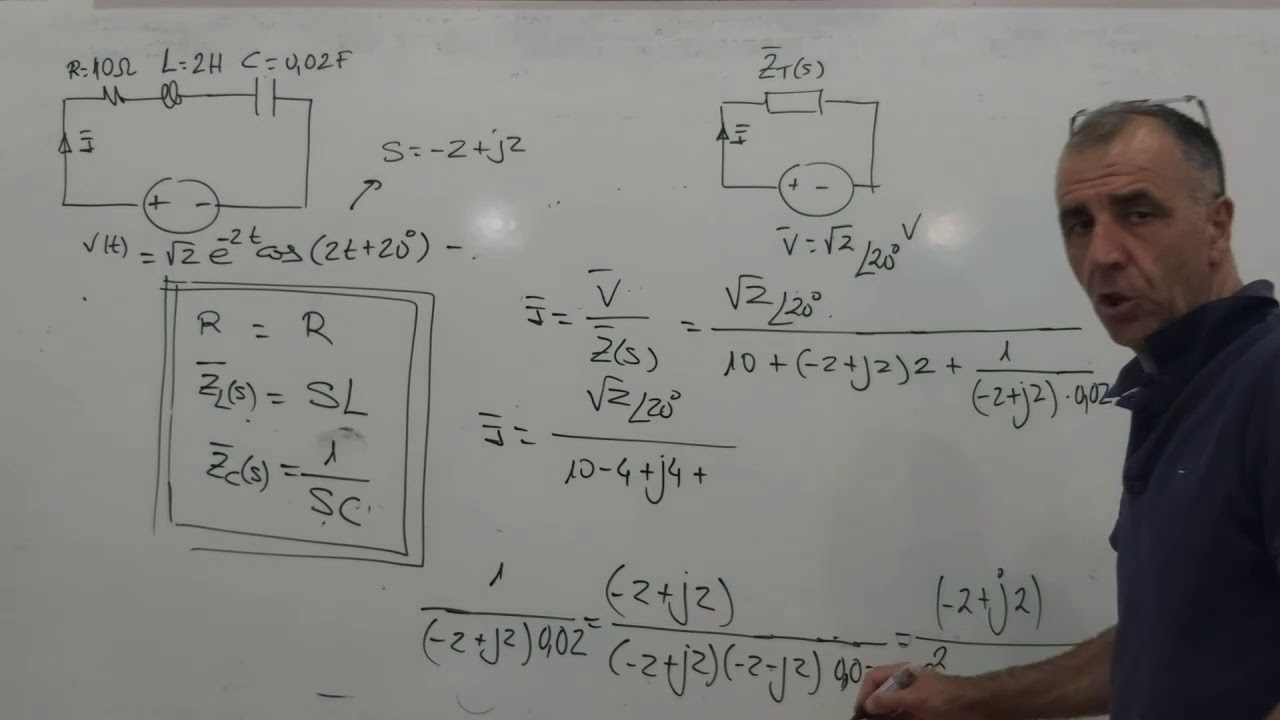 R=10Ω L=2H C=0,02F
Ī
+ -
S=-2+j2
v(t) = √2 e^-2t cos(2t+20°) -
Z̄T(s)
Ī
+ -
V̄=√2 ∠20° V
R = R
Z̄L(s) = SL
Z̄C(s) = 1/SC
Ī = V̄/Z̄(s) = √2 ∠20° / 10+(-2+j2)2+ 1/(-2+j2)·0,02
Ī = √2 ∠20° / 10-4+j4+
1/(-2+j2)0,02 = (-2+j2)/(-2+j2)(-2-j2) 0,0 = (-2+j2)/2